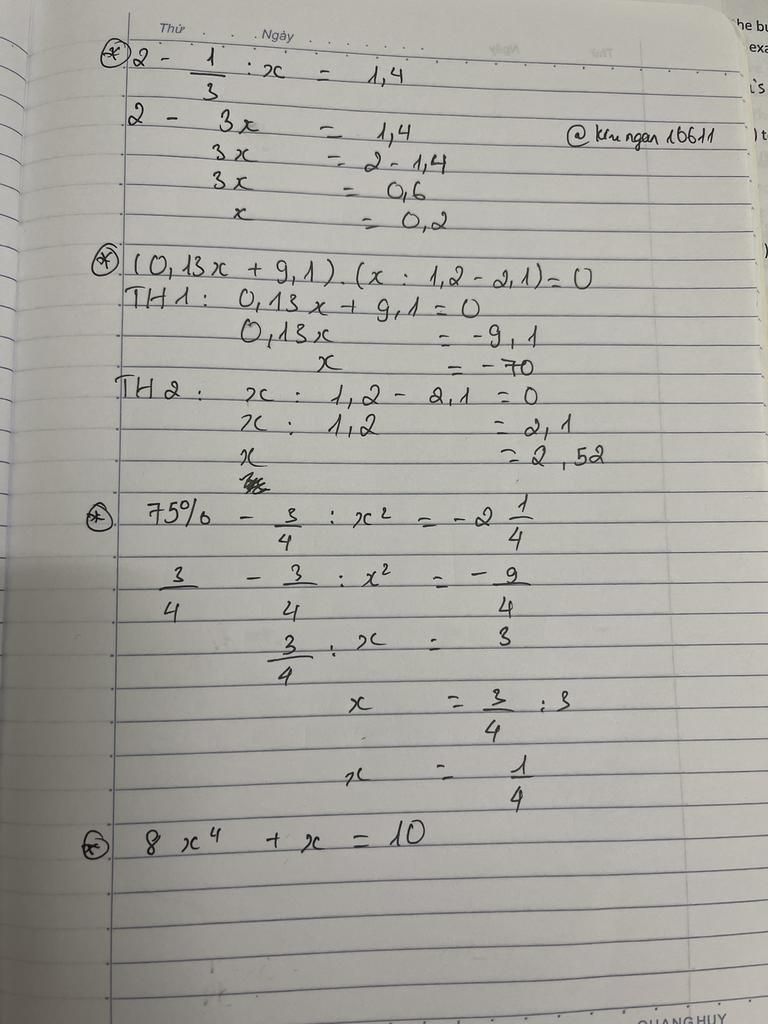 Thứ . . . . Ngày . . . . . . .
* 2 - 1/3 : x = 1,4
2 - 3x = 1,4
@kimngan16611
3x = 2 - 1,4
3x = 0,6
x = 0,2
* (0,13x + 9,1) . (x : 1,2 - 2,1) = 0
TH1 : 0,13x + 9,1 = 0
0,13x = -9,1
x = -70
TH2 : x : 1,2 - 2,1 = 0
x : 1,2 = 2,1
x = 2,52
* 75% - 3/4 : x² = -2 1/4
3/4 - 3/4 : x² = - 9/4
3/4 : x = 3
x = 3/4 : 3
x = 1/4
* 8x⁴ + x = 10
QUANG HUY